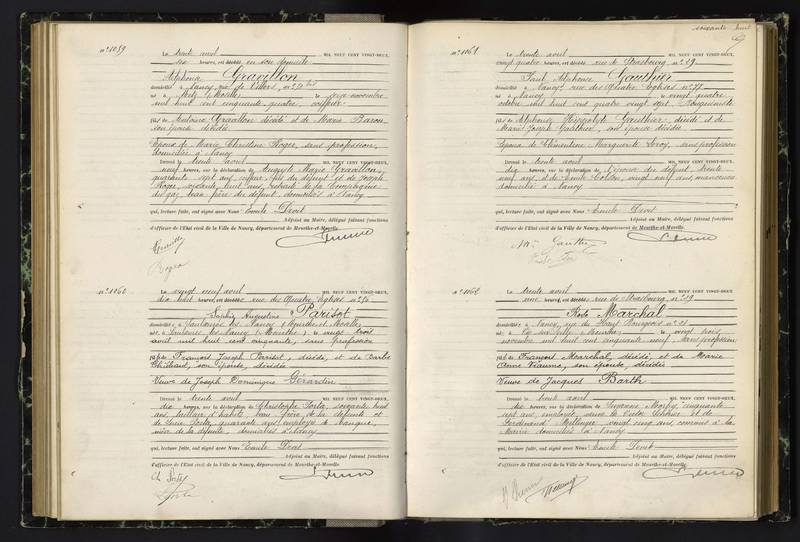 n° 1059
Le trente avril MIL NEUF CENT VINGT-DEUX,
six heures, est décédé en son domicile
Alphonse Gravillon
domicilié à Nancy, rue de Villers, n° 31 bis
né à Metz (Moselle), le onze novembre
mil huit cent cinquante quatre, coiffeur
fils de Antoine Gravillon décédé et de Marie Baron,
son épouse décédée
Epoux de Marie Christine Roger, sans profession,
domiciliée à Nancy
Dressé le trente avril MIL NEUF CENT VINGT-DEUX,
neuf heures, sur la déclaration de Auguste Marie Gravillon,
quarante sept ans, coiffeur, fils du défunt et de Joseph
Roger, soixante huit ans, retraité de la Compagnie
du gaz, beau frère du défunt, domiciliés à Nancy
qui, lecture faite, ont signé avec Nous Emile Drot
Adjoint au Maire, délégué faisant fonctions
d'officier de l'Etat civil de la Ville de Nancy, département de Meurthe-et-Moselle.
Gravillon
Roger
n° 1060
Le vingt neuf avril MIL NEUF CENT VINGT-DEUX,
dix huit heures, est décédée rue des Quatre Eglises n° 56
Sophie Augustine Parisot
domiciliée à Saulxures les Nancy (Meurthe et Moselle)
née à Saulxures les Nancy (Meurthe) le vingt trois
avril mil huit cent cinquante, sans profession
fille de François Joseph Parisot, décédé, et de Barbe
son épouse, décédée
Veuve de Joseph Dominique Gérardin
Dressé le trente avril MIL NEUF CENT VINGT-DEUX,
dix heures, sur la déclaration de Christophe Porte, soixante huit
ans, tailleur d'habits, beau frère de la défunte et
de Porte, quarante ans, employé de banque,
de la défunte, domiciliés à Nancy
qui, lecture faite, ont signé avec Nous Emile Drot
Adjoint au Maire, délégué faisant fonctions
d'officier de l'Etat civil de la Ville de Nancy, département de Meurthe-et-Moselle.
Porte
soixante huit
n° 1061
Le trente avril MIL NEUF CENT VINGT-DEUX,
vingt quatre heures, est décédé rue de Strasbourg n° 29
Paul Alphonse Gauthier
domicilié à Nancy, rue des Quatre Eglises n° 77
né à Nancy, le vingt quatre
octobre mil huit cent quatre vingt sept,
fils de Alphonse Hippolyte Gauthier, décédé et de
Marie Joseph Gauthier, son épouse décédée
Epoux de Clémentine Marguerite Leroy, sans profession
Dressé le trente avril MIL NEUF CENT VINGT-DEUX,
dix heures, sur la déclaration de l'épouse du défunt, trente
neuf ans, et de Emile vingt neuf ans, manoeuvre
domiciliés à Nancy
qui, lecture faite, ont signé avec Nous Emile Drot
Adjoint au Maire, délégué faisant fonctions
d'officier de l'Etat civil de la Ville de Nancy, département de Meurthe-et-Moselle.
Gauthier
n° 1062
Le trente avril MIL NEUF CENT VINGT-DEUX,
une heures, est décédée rue de Strasbourg n° 29
Rose Marchal
domiciliée à Nancy, rue du Haut Bourgeois n° 31
née à Vic sur Seille (Meurthe), le vingt trois
novembre mil huit cent cinquante neuf, sans profession
fille de François Marchal, décédé, et de Marie
Anne Vianne, son épouse, décédée
Veuve de Jacques Barth
Dressé le trente avril MIL NEUF CENT VINGT-DEUX,
dix heures, sur la déclaration de Suzanne cinquante
sept ans, employée, et de
Ferdinand vingt cinq ans, commis à la
Mairie domiciliés à Nancy
qui, lecture faite, ont signé avec Nous Emile Drot
Adjoint au Maire, délégué faisant fonctions
d'officier de l'Etat civil de la Ville de Nancy, département de Meurthe-et-Moselle.